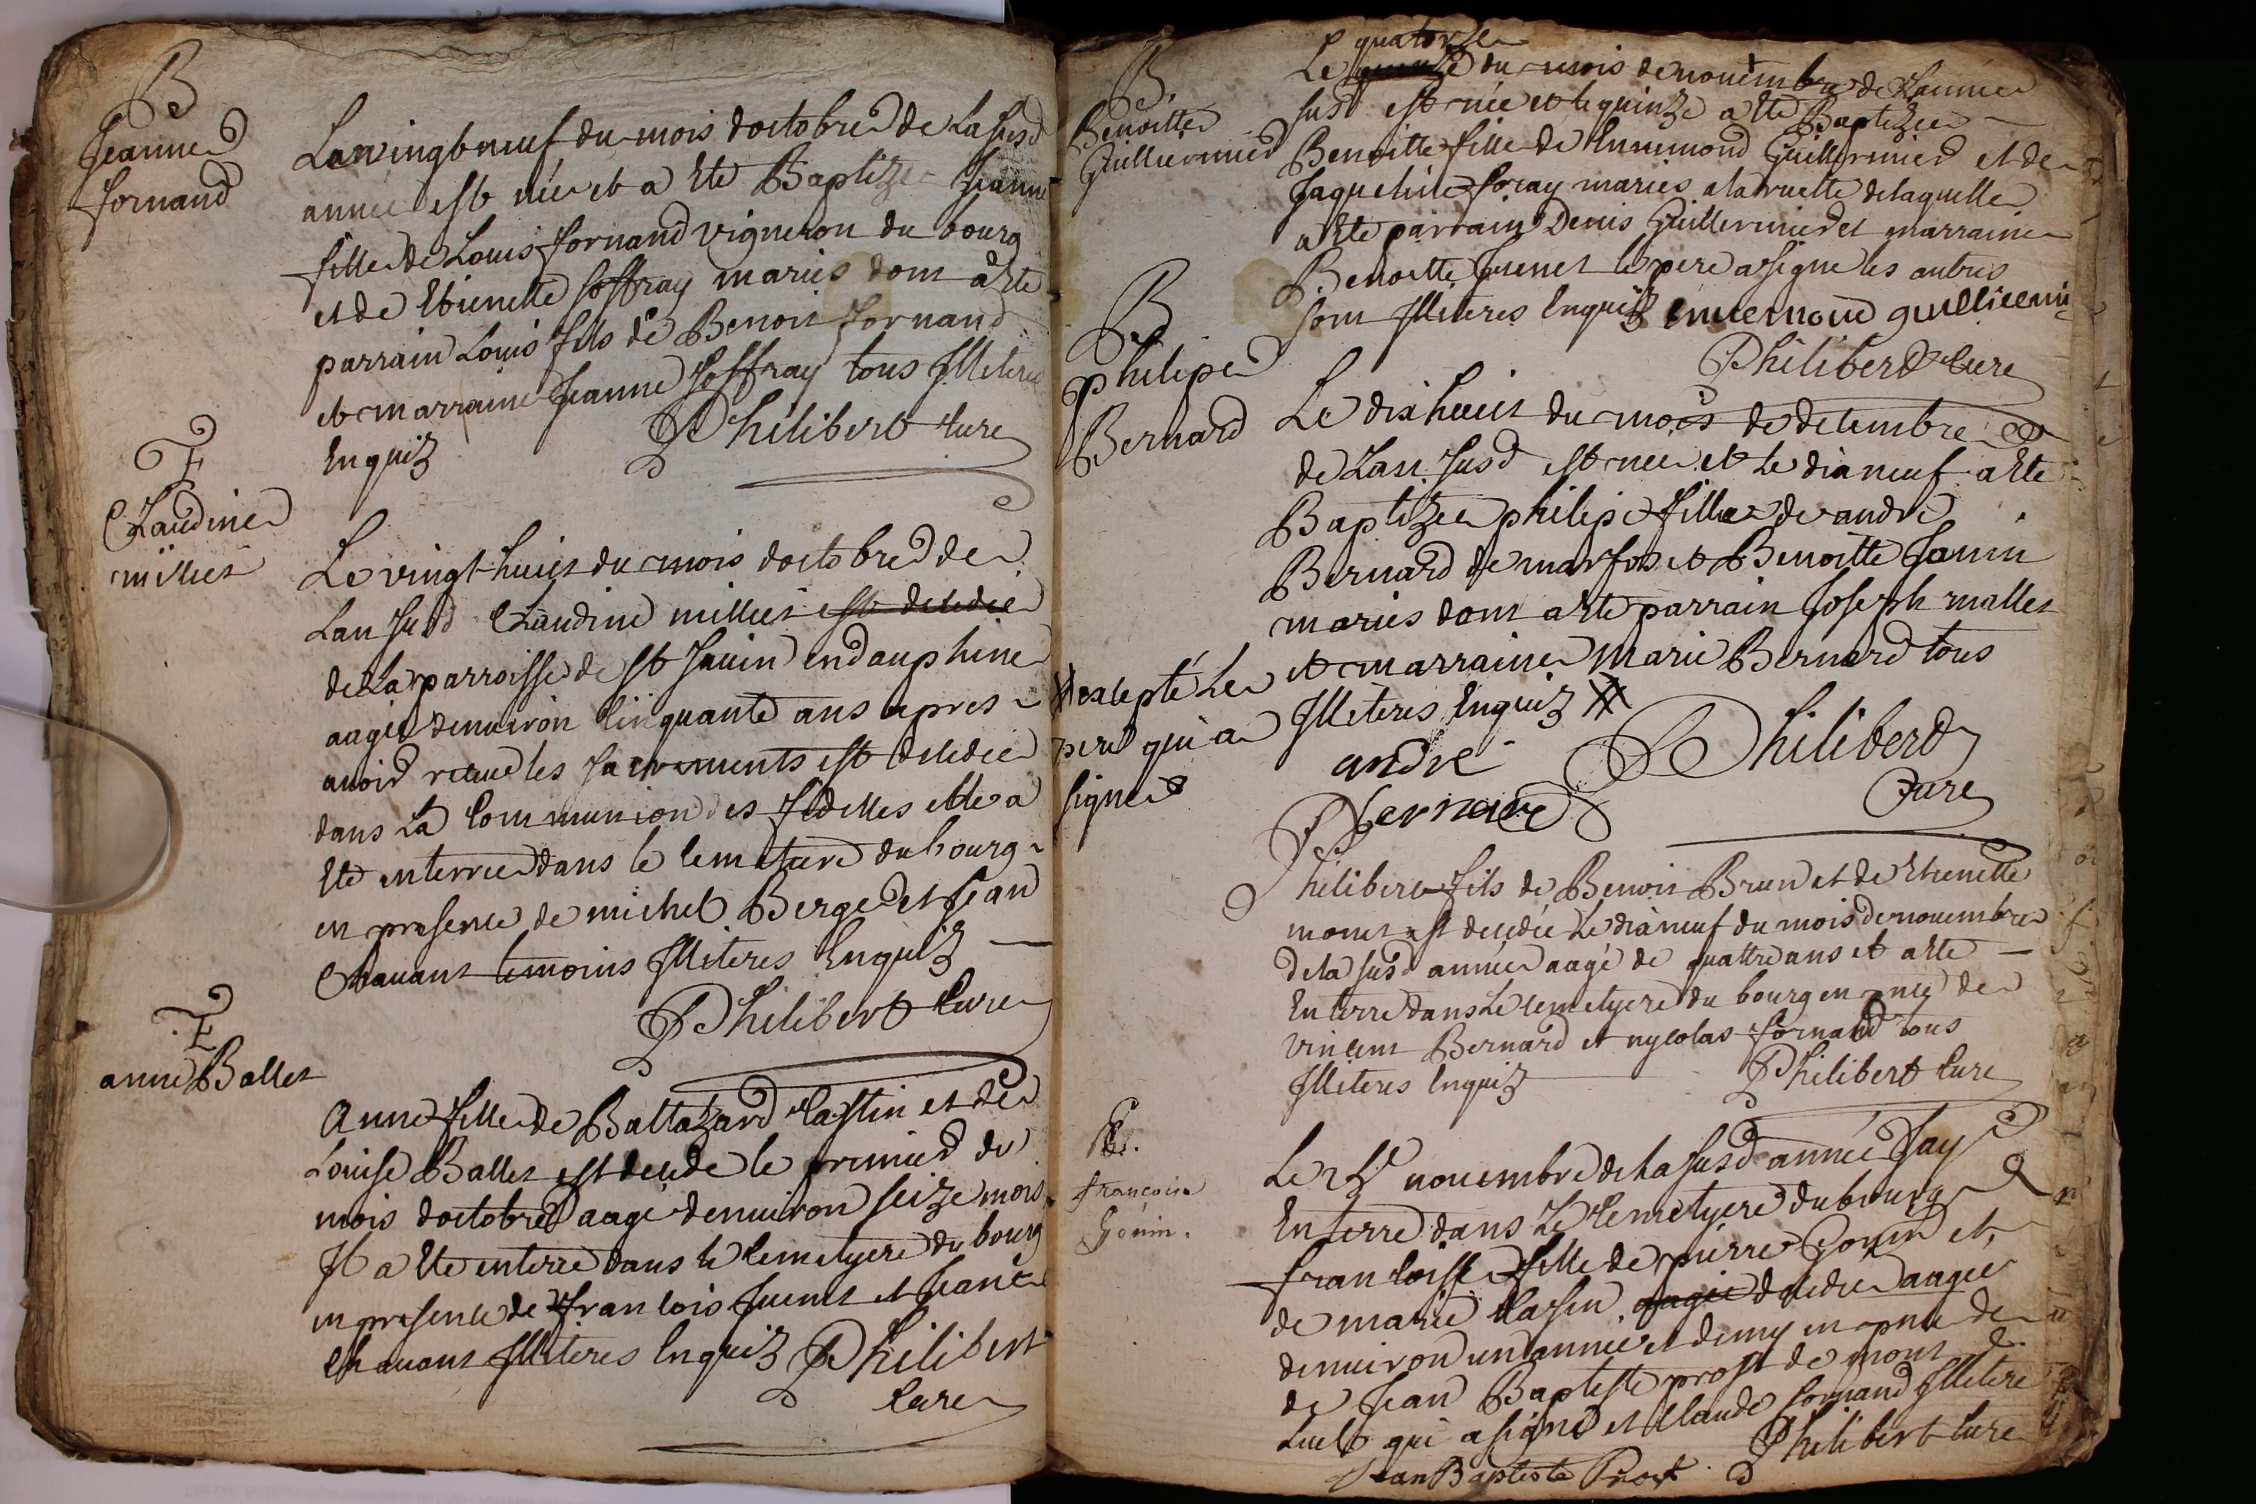 B
Jeanne
fornand
Le vingt neuf du mois doctobre de la susd
année est née et a Ete Baptizee Jeanne
fille de Louis fornand vigneron du bourg
et de Etienette Joffray mariés dont a Ete
parrain Louis fils de Benoit fornand
et marraine Jeanne Joffray tous Illiteres
Enquiz
Philibert Cure
E
Claudine
milliet
Le vingt huict du mois doctobre de
Lan susd Claudine milliet est decedée
de La parroisse de st Savin en dauphine
aagée denuiron Cinquante ans apres
auoir receu les sacrements est decedée
dans La Communion des fidelles elle a
Ete enterree dans le Cemetiere du bourg
en presence de michel Berger et Jean
Chauant temoins Illiteres Enquiz
Philibert Cure
E
anne Ballet
Anne fille de Baltazard Castin et de
Louise Ballet est decede le premier du
mois doctobre aagé denuiron seize mois
Il a Ete enterré dans le Cemetyere du bourg
en presence de francois Juenet et Jean
Chauant Illiteres Enquiz Philibert
Cure
B.
Benoitte
Guillermier
quatorze
Le quinze du mois de nouembre de Lannee
susd est née et le quinze a ete Baptizee
Benoitte fille de Ennemond Guillermier et de
Jaqueline foray mariés a la ruette de laquelle
a Ete parrain Denis Guillermier et marraine
Benoitte Juenet le pere a signe les autres
sont Illiteres Enquiz ennemond guilliermi
Philibert Cure
B
philipe
Bernard
Le dix huict du mois de decembre
de Lan susd est nee et le dix neuf a Ete
Baptizee philipe fille de andre
Bernard de marfos et Benoitte Janin
mariés dont a Ete parrain Joseph mallet
et marraine Marie Bernard tous
Illiteres Enquiz #
# excepté Le
pere qui a
signe
andré
Bernard
Philibert
Cure
Philibert fils de Benoit Brun et de Etienette
monet est decedée Le dix neuf du mois de nouembre
de la susd année aagé de quattre ans et a Ete
Enterre dans Le cemetyere du bourg en pnce de
vincent Bernard et nycolas fornand tous
Illiteres Enquiz Philibert Cure
francoise
Gonin.
Le nouembre de La susd année Jay
Enterre dans Le Cemetyere du bourg
francoise fille de pierre Gonin et
de marie Cassin aagée decedee aagee
denuiron un année et demy en pnce de
de Jean Baptiste prost de mont
Luel qui a signé et Claude fornand Illitere
Jean Baptiste Prost Philibert Cure